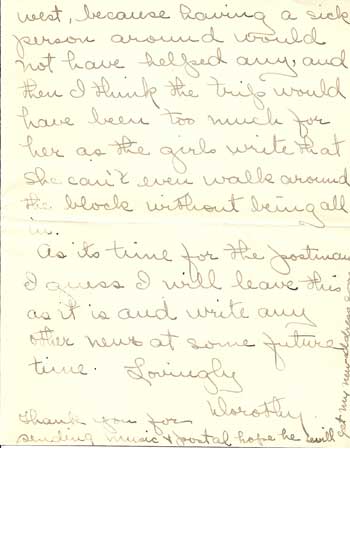 west, because having a sick
person around would
not have helped any; and
then I think the trip would
have been too much for
her as the girls write that
she can't even walk around
the block without being all
in.
As its time for the postman
I guess I will leave this
as it is and write any
other news at some future
time. Lovingly
Dorothy.
Thank you for
sending music & postal hope he will
get my new address soon